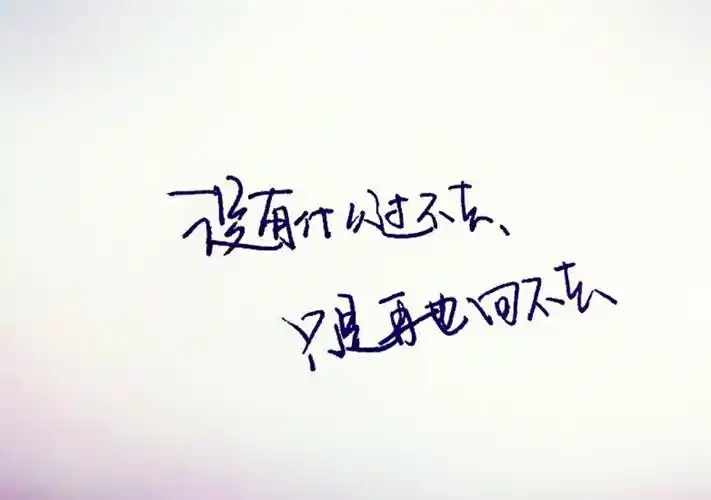 没有什么过不去、
只是再也回不去